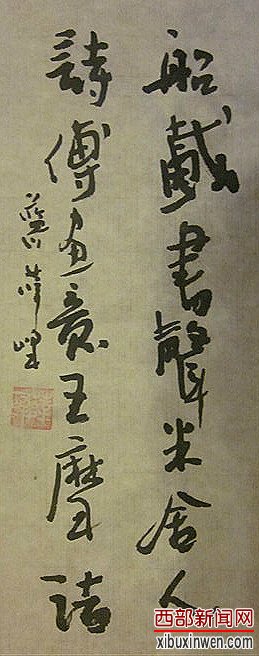 船載書聲米舍人
詩傳畫意王摩詰
藍川
西部新闻网
xibuxinwen.com